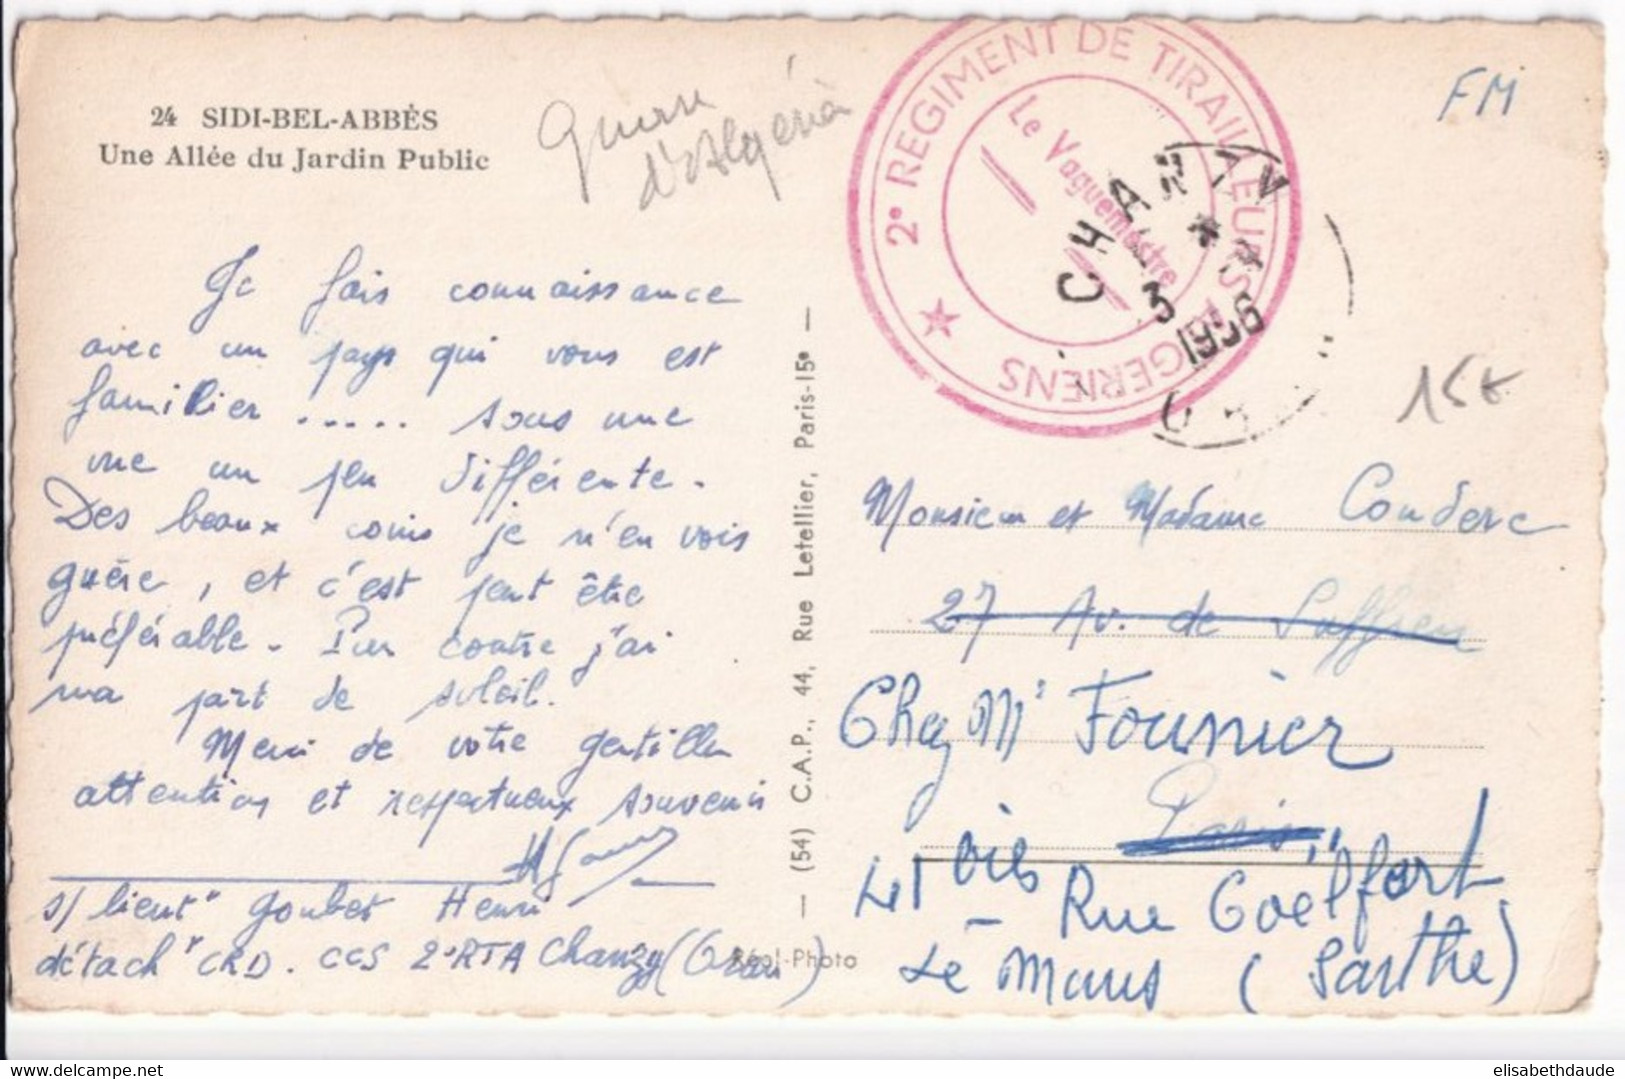 24 SIDI-BEL-ABBÈS
Une Allée du Jardin Public
Guerre
d'Algérie
FM
2e REGIMENT DE TIRAILLEURS ALGERIENS
Le Vaguemestre
CHANZY
* 
3
1956
ORAN
15€
Je fais connaissance
avec un pays qui vous est
familier ..... sous une
vue un peu différente.
Des beaux coins je n'en vois
guère, et c'est peut être
préférable. Par contre j'ai
ma part de soleil.
Merci de votre gentille
attention et respectueux souvenir
s/lieutt Goubet Henri
détacht CRD. CCS 2eRTA Chanzy (Oran)
(54) C.A.P., 44, Rue Letellier, Paris-15e
Réal-Photo
Monsieur et Madame Couderc
27 Av. de Suffren
Chez Mr Fournier
Paris
41 bis Rue
Le Mans (Sarthe)
elisabethdaude